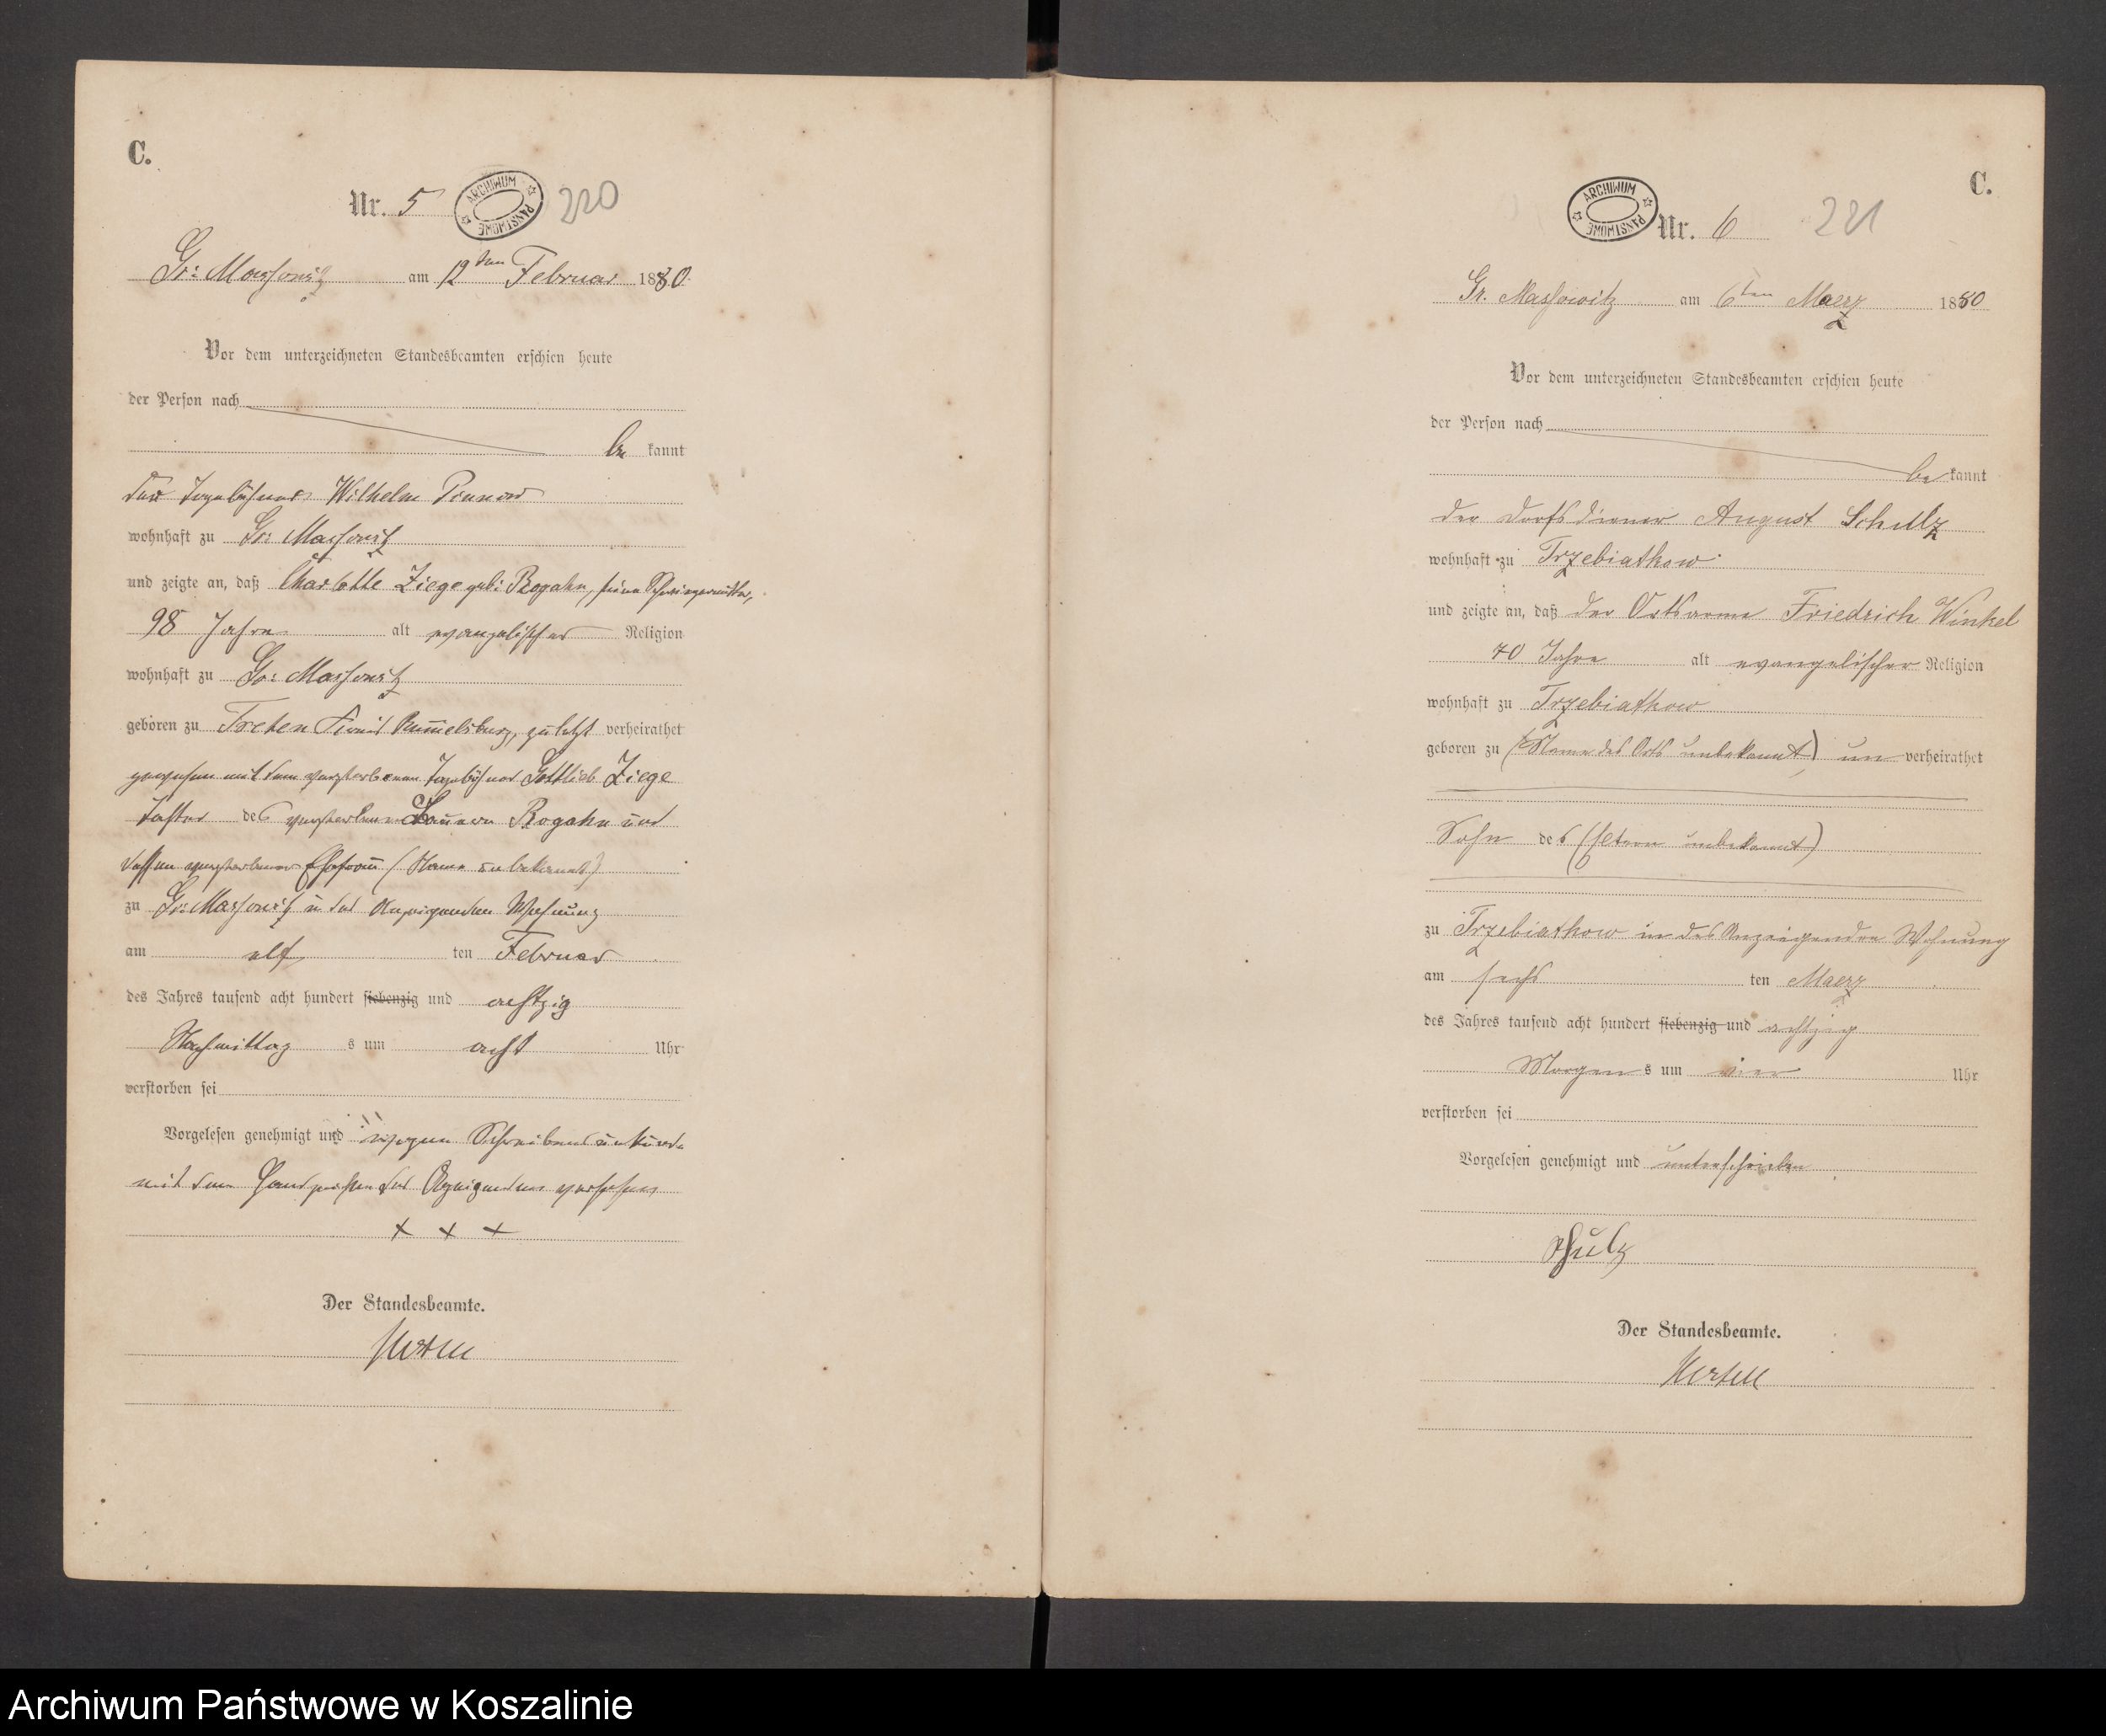 C.
Nr. 5
ARCHIWUM PAŃSTWOWE
220
Gr: Massowitz am 12ten Februar 1880.
Vor dem unterzeichneten Standesbeamten erschien heute
der Person nach
be kannt
der Tagelöhner Wilhelm
wohnhaft zu Gr: Massowitz
und zeigte an, daß Charlotte Ziege geb: Rogahn, seine Schwiegermutter,
98 Jahre alt evangelischer Religion
wohnhaft zu Gr: Massowitz
geboren zu Treten Kreis Rummelsburg, zuletzt verheirathet
gewesen mit dem verstorbenen Tagelöhner Gottlieb Ziege
Tochter des verstorbenen Bauern Rogahn und
dessen verstorbener Ehefrau (Name unbekannt)
zu Gr: Massowitz in des Anzeigenden Wohnung
am elf ten Februar
des Jahres tausend acht hundert siebenzig und achtzig
Nachmittag s um acht Uhr
verstorben sei
Vorgelesen genehmigt und wegen Schreibensunkunde
mit dem Handzeichen des Anzeigenden versehen
+ + +
Der Standesbeamte.
C.
ARCHIWUM PAŃSTWOWE
Nr. 6
221
Gr. Massowitz am 6ten Maerz 1880
Vor dem unterzeichneten Standesbeamten erschien heute
der Person nach
be kannt
der Dorfsdiener August Schulz
wohnhaft zu Trzebiatkow
und zeigte an, daß der Ortsarme Friedrich Winkel
70 Jahre alt evangelischer Religion
wohnhaft zu Trzebiatkow
geboren zu (Name des Orts unbekannt) un verheirathet
Sohn des (Eltern unbekannt)
zu Trzebiatkow in des Anzeigenden Wohnung
am sechs ten Maerz
des Jahres tausend acht hundert siebenzig und achtzig
Morgen s um vier Uhr
verstorben sei
Vorgelesen genehmigt und unterschrieben
Schulz
Der Standesbeamte.
Archiwum Państwowe w Koszalinie